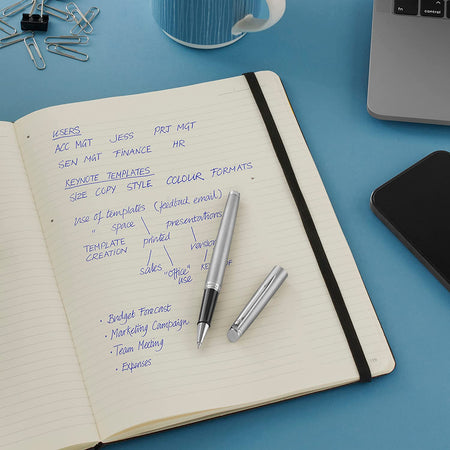 USERS
ACC MGT JESS PRJ MGT
SEN MGT FINANCE HR
KEYNOTE TEMPLATES
SIZE COPY STYLE COLOUR FORMATS
use of templates (feedback email)
" space presentations
TEMPLATE CREATION printed
sales "office" use
• Budget Forecast
• Marketing Campaign
• Team Meeting
• Expenses
fn control